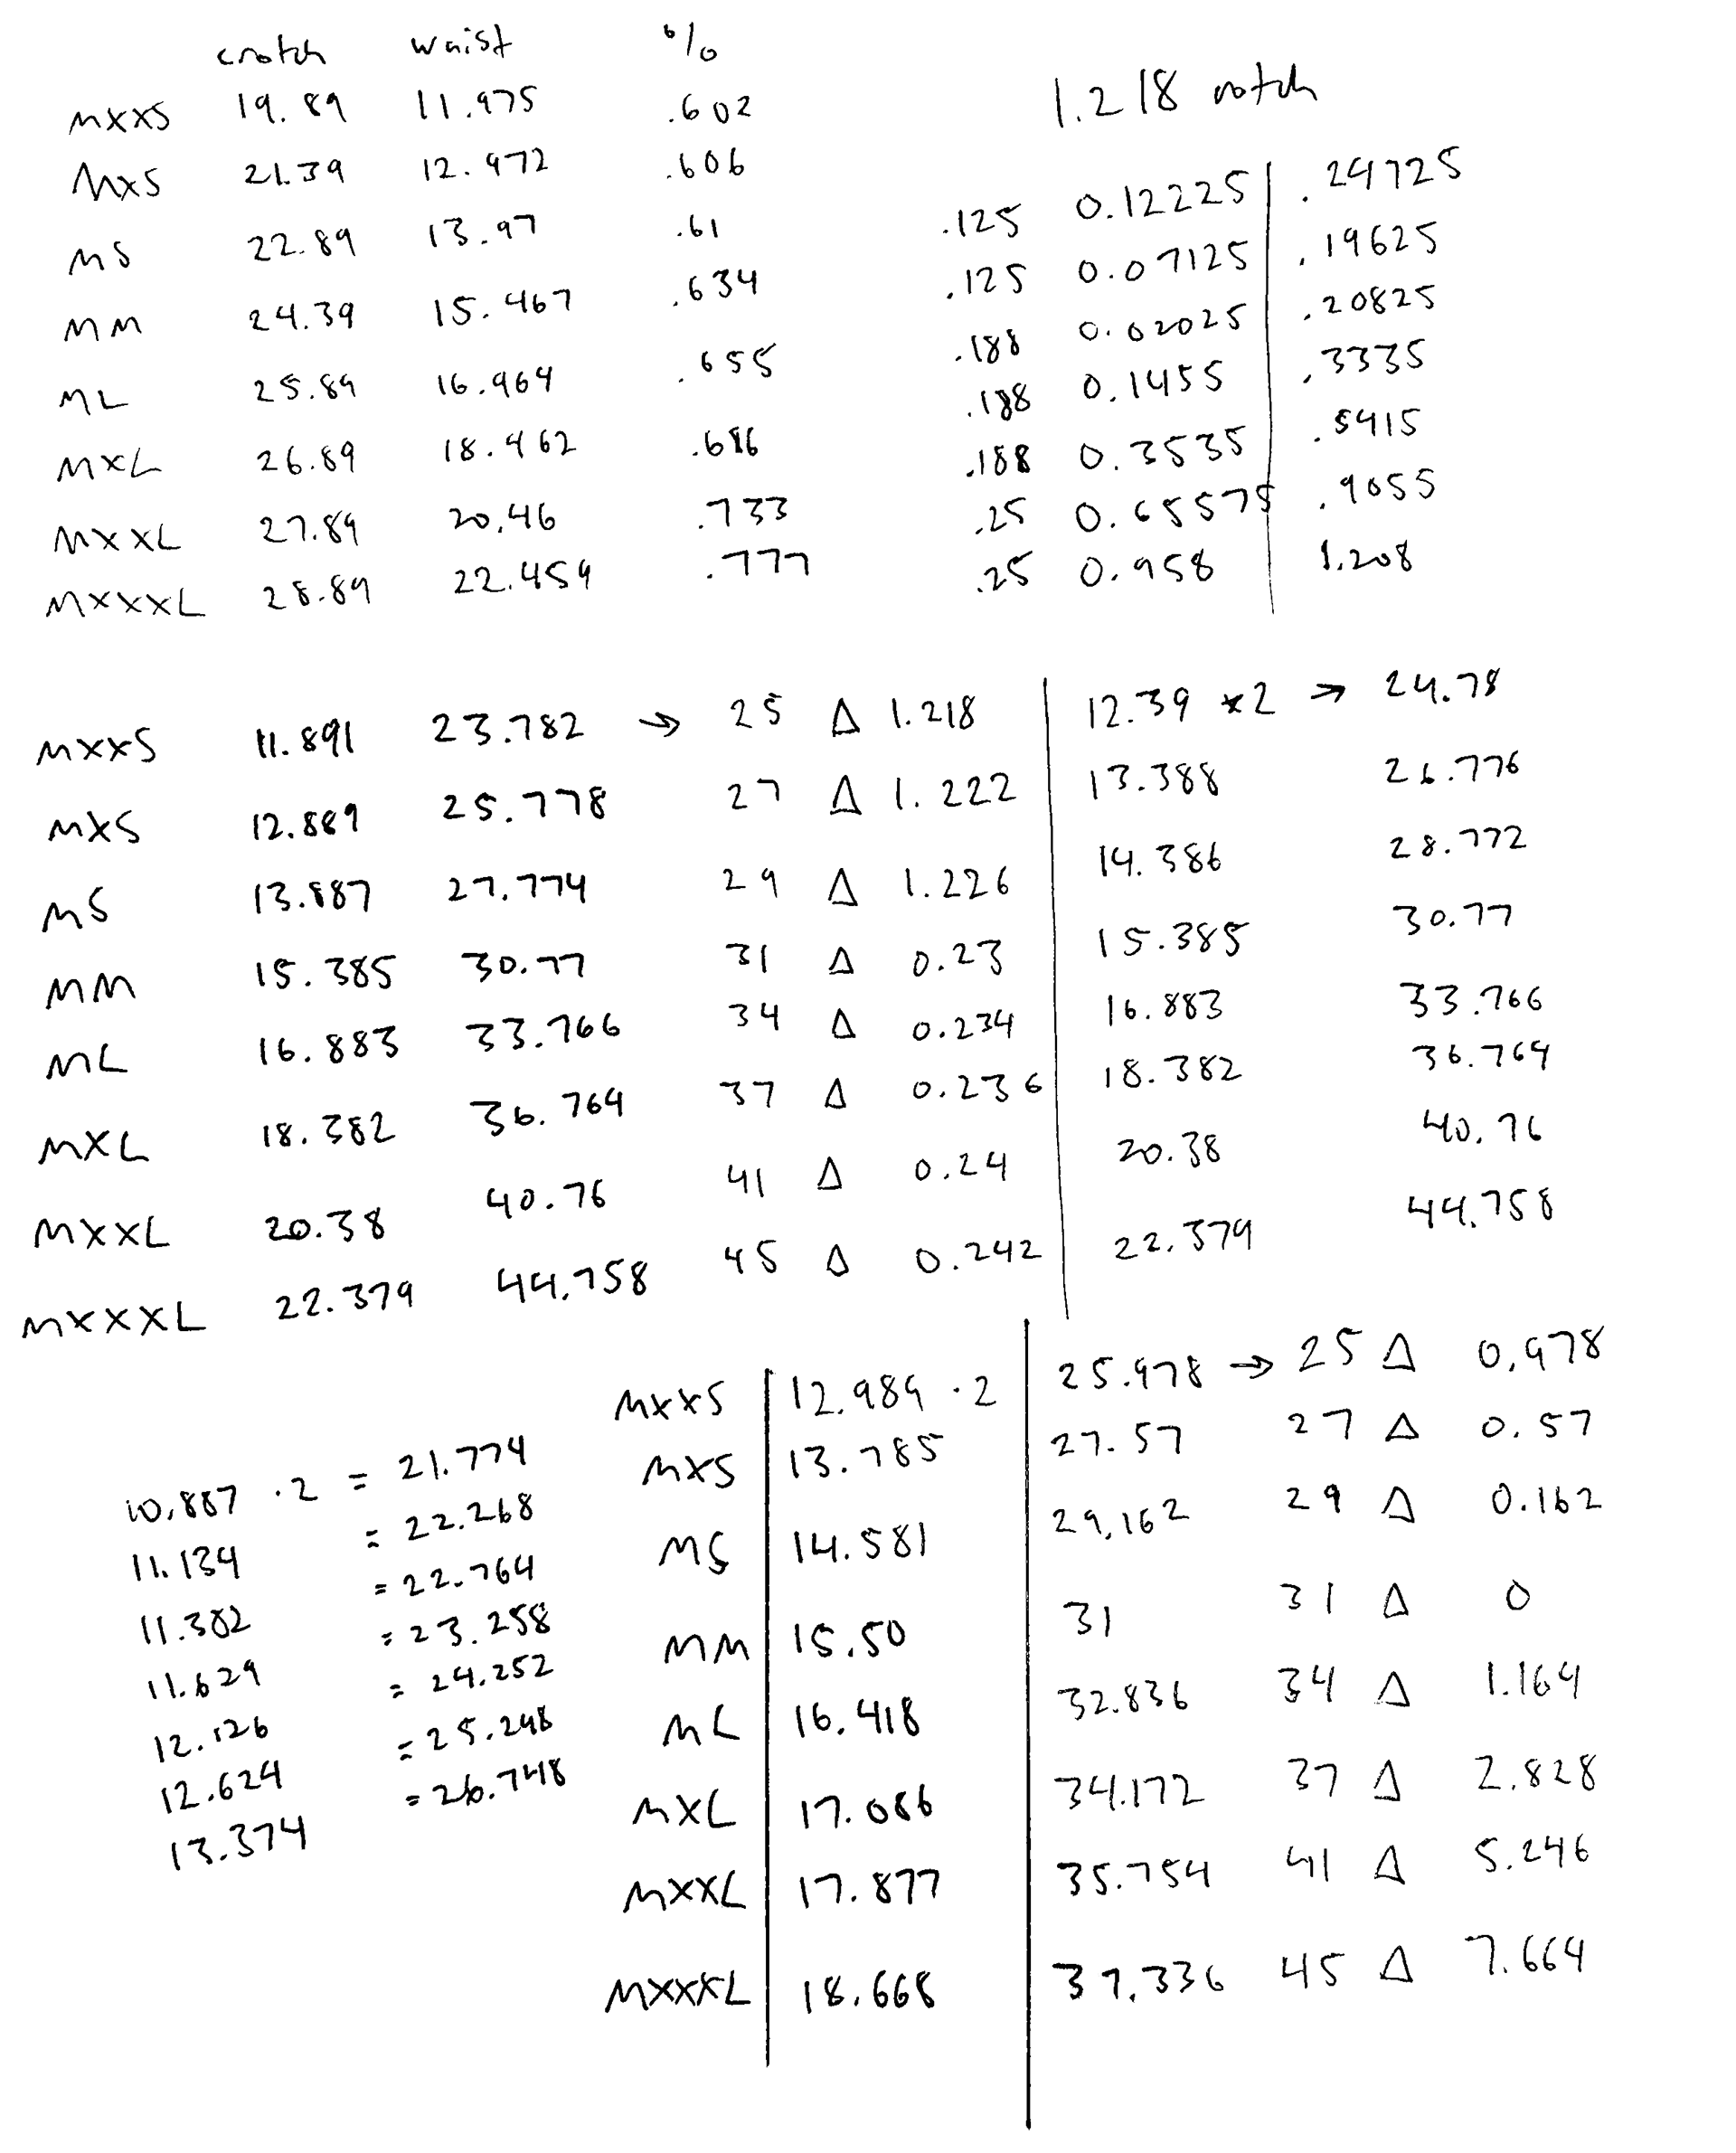 crotch waist %
1.218 notch
MXXS 19.89 11.975 .602
MXS 21.39 12.972 .606
MS 22.89 13.97 .61 .125 0.12225 .24725
MM 24.39 15.467 .634 .125 0.07125 .19625
ML 25.89 16.964 .655 .188 0.02025 .20825
MXL 26.89 18.462 .686 .188 0.1455 .3335
MXXL 27.89 20.46 .733 .188 0.3535 .5415
MXXXL 28.89 22.459 .777 .25 0.65575 .9055
.25 0.958 1.208
MXXS 11.891 23.782 → 25 Δ 1.218 12.39 *2 → 24.78
MXS 12.889 25.778 27 Δ 1.222 13.388 26.776
MS 13.887 27.774 29 Δ 1.226 14.386 28.772
MM 15.385 30.77 31 Δ 0.23 15.385 30.77
ML 16.883 33.766 34 Δ 0.234 16.883 33.766
MXL 18.382 36.764 37 Δ 0.236 18.382 36.764
MXXL 20.38 40.76 41 Δ 0.24 20.38 40.76
MXXXL 22.379 44.758 45 Δ 0.242 22.379 44.758
MXXS 12.989 ·2 25.978 → 25 Δ 0.978
MXS 13.785 27.57 27 Δ 0.57
MS 14.581 29.162 29 Δ 0.162
MM 15.50 31 31 Δ 0
ML 16.418 32.836 34 Δ 1.164
MXL 17.086 34.172 37 Δ 2.828
MXXL 17.877 35.754 41 Δ 5.246
MXXXL 18.668 37.336 45 Δ 7.664
10.887 ·2 = 21.774
11.134 = 22.268
11.382 = 22.764
11.629 = 23.258
12.126 = 24.252
12.624 = 25.248
13.374 = 26.748